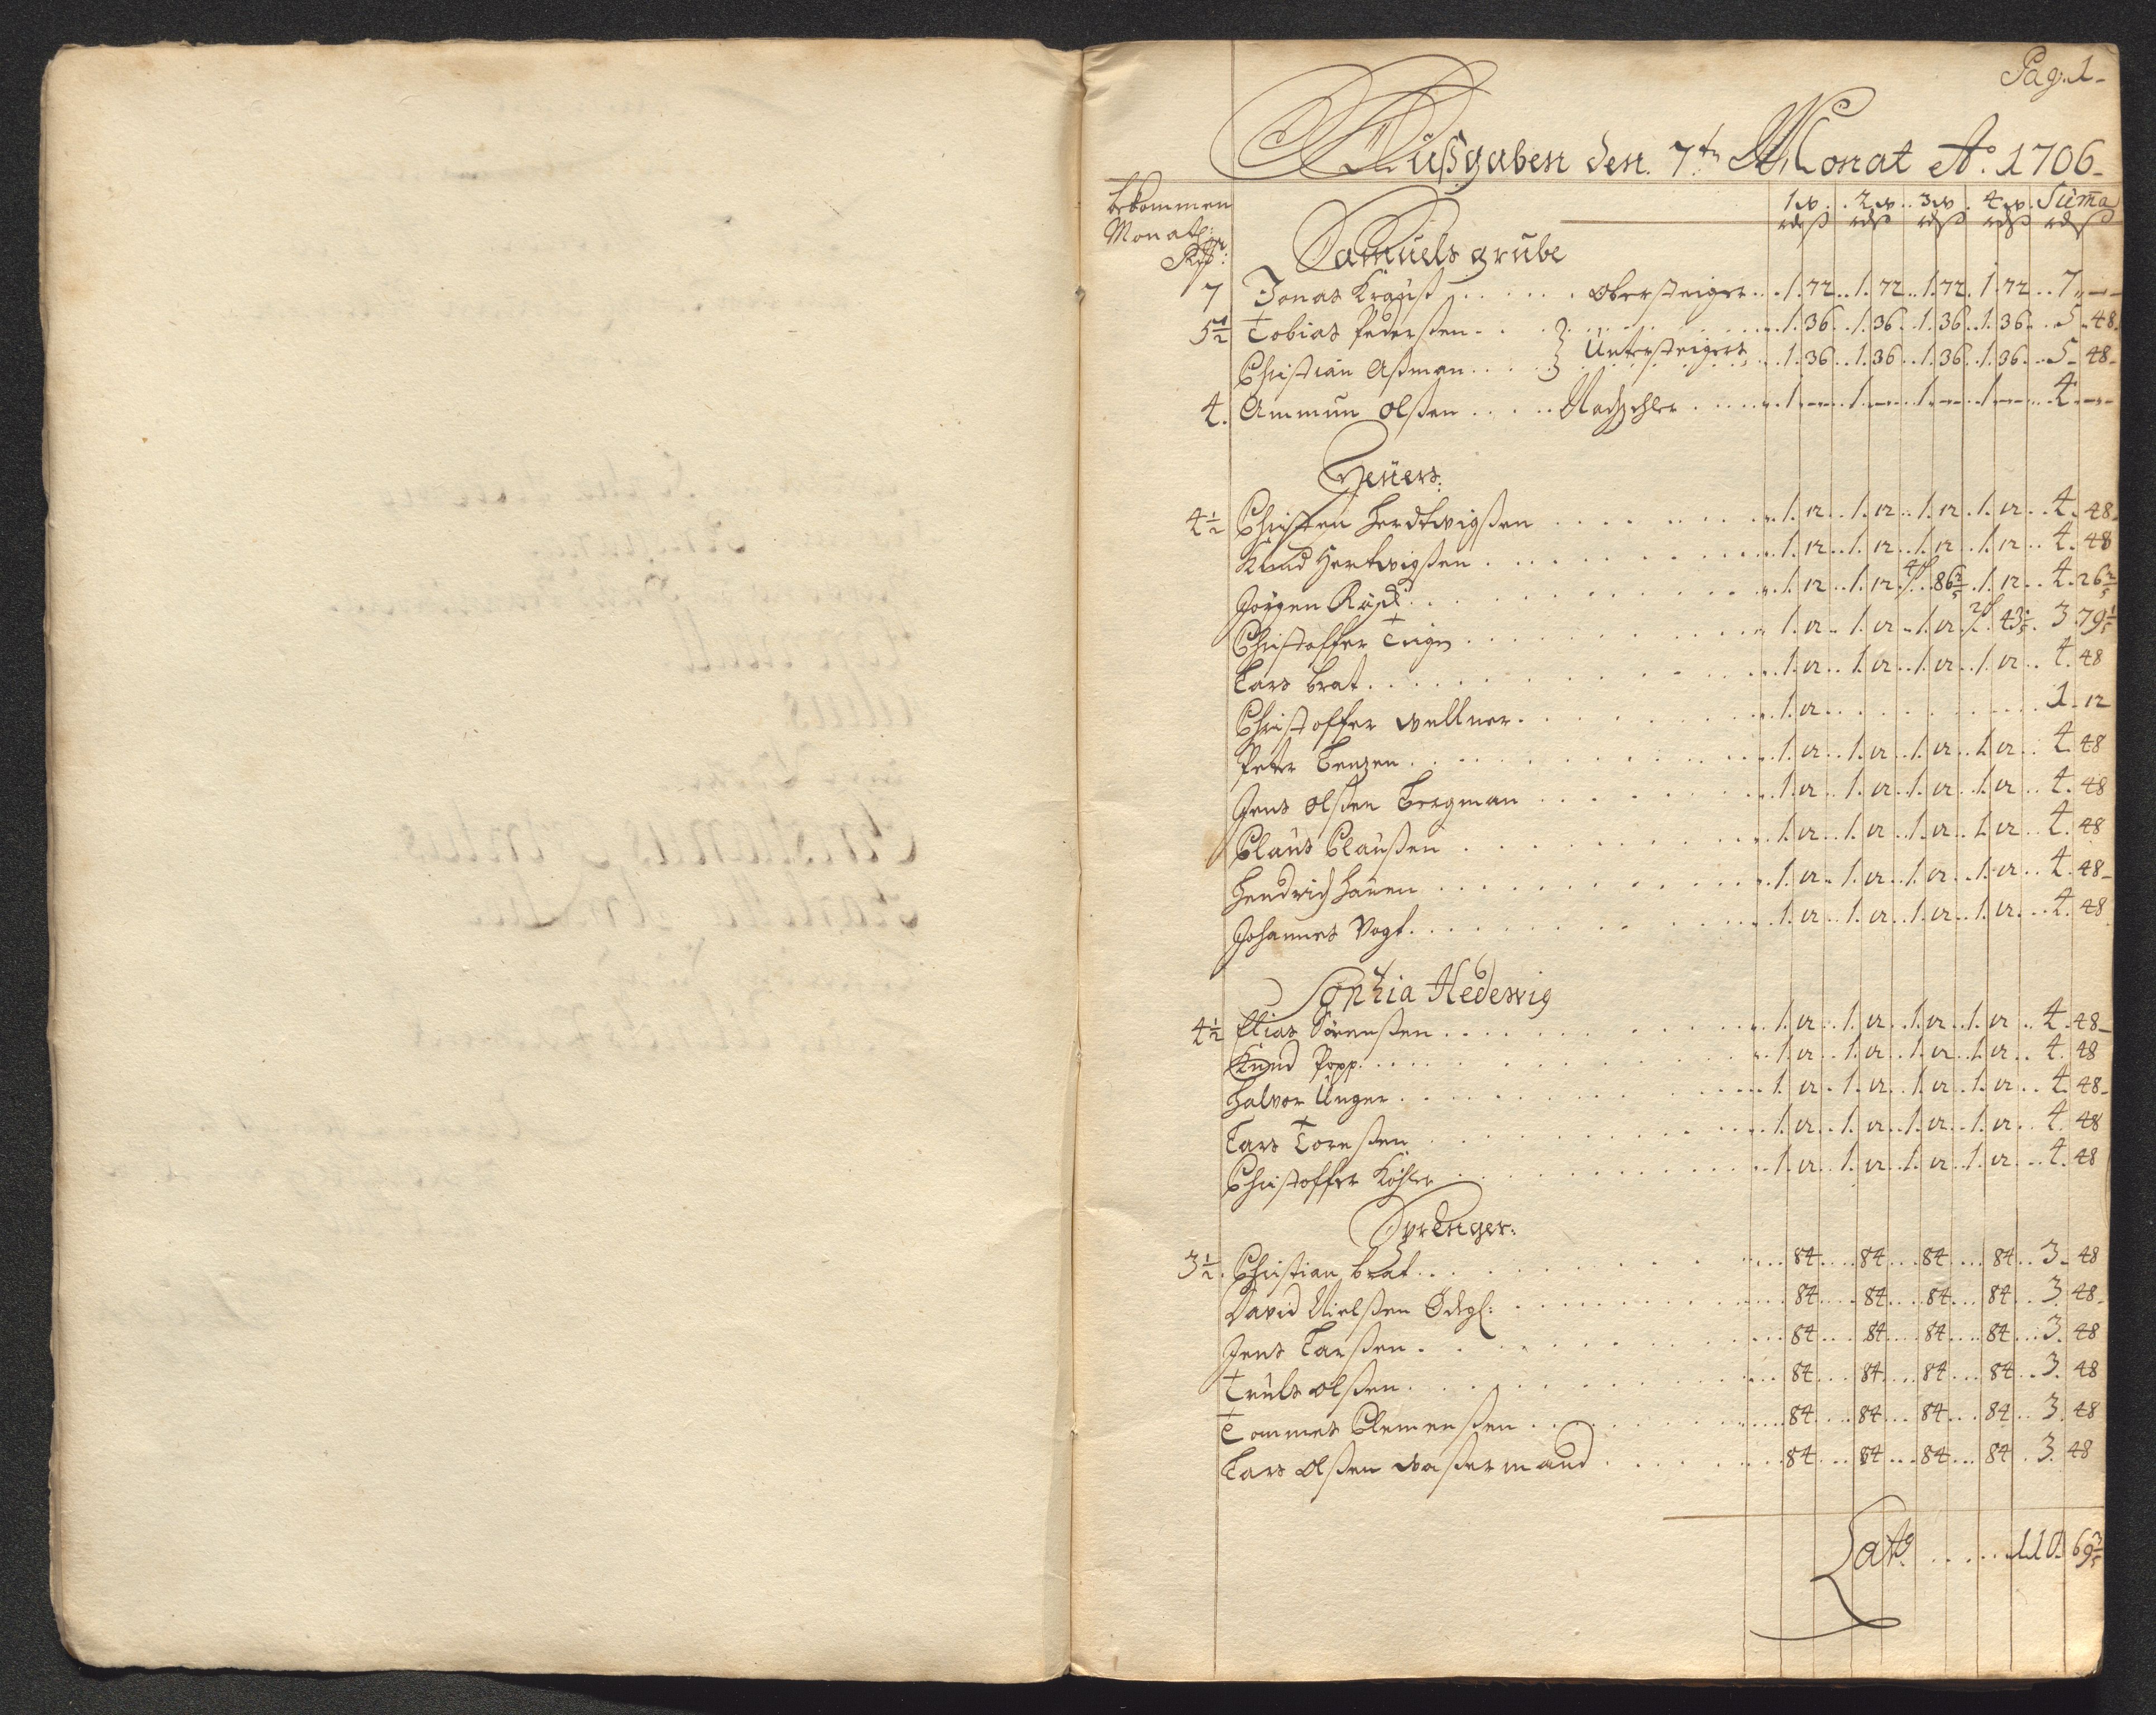 Pag. 1-
Außgaben den 7tn Monat Ao. 1706
bekommen
Monatl:
1 w. 2 w. 3 w. 4 w. Suma
rd ß rd ß rd ß rd ß rd ß
Samuels grube
7 Jonas Krauß Obersteiger 1. 72 1. 72 1. 72 1. 72 7 —
5 1/2 Tobias Pedersen 1. 36 1. 36 1. 36 1. 36 5. 48
Untersteigers
Christian Aßman 1. 36 1. 36 1. 36 1. 36 5. 48
4. Ammun Olßen Nachzehler 1. — 1. — 1. — 1. — 4. —
Heüers:
4 1/2 Christen Herdtwigßen 1. 12 1. 12 1. 12 1. 12 4. 48
Knud Hertwigßen 1. 12 1. 12 1. 12 1. 12 4. 48
Joygen 1. 12 1. 12 86 2/5 1. 12 4. 26 2/5
Christoffer 1. 12 1. 12 1. 12 43 1/5 3. 79 1/5
Lars brat 1. 12 1. 12 1. 12 1. 12 4. 48
Christoffer wellner 1. 12 1. 12
Peter Lenzen 1. 12 1. 12 1. 12 1. 12 4. 48
Jens Olßen Bergman 1. 12 1. 12 1. 12 1. 12 4. 48
Claus Claußen 1. 12 1. 12 1. 12 1. 12 4. 48
Hendrich Hauen 1. 12 1. 12 1. 12 1. 12 4. 48
Johannes Vogt 1. 12 1. 12 1. 12 1. 12 4. 48
Sophia Hedewig
4 1/2 Elias Sörenßen 1. 12 1. 12 1. 12 1. 12 4. 48
Knud Popp 1. 12 1. 12 1. 12 1. 12 4. 48
Halvor Unger 1. 12 1. 12 1. 12 1. 12 4. 48
Lars Toreßen 1. 12 1. 12 1. 12 1. 12 4. 48
Christoffer Köhler 1. 12 1. 12 1. 12 1. 12 4. 48
Sprenger:
3 1/2. Christian brat 84 84 84 84 3. 48
David Nielßen 84 84 84 84 3. 48
Jens Larßen 84 84 84 84 3. 48
Truls Olßen 84 84 84 84 3. 48
Tommes Clemenßen 84 84 84 84 3. 48
Lars Olßen waßermand 84 84 84 84 3. 48
Lato 110. 69 3/5